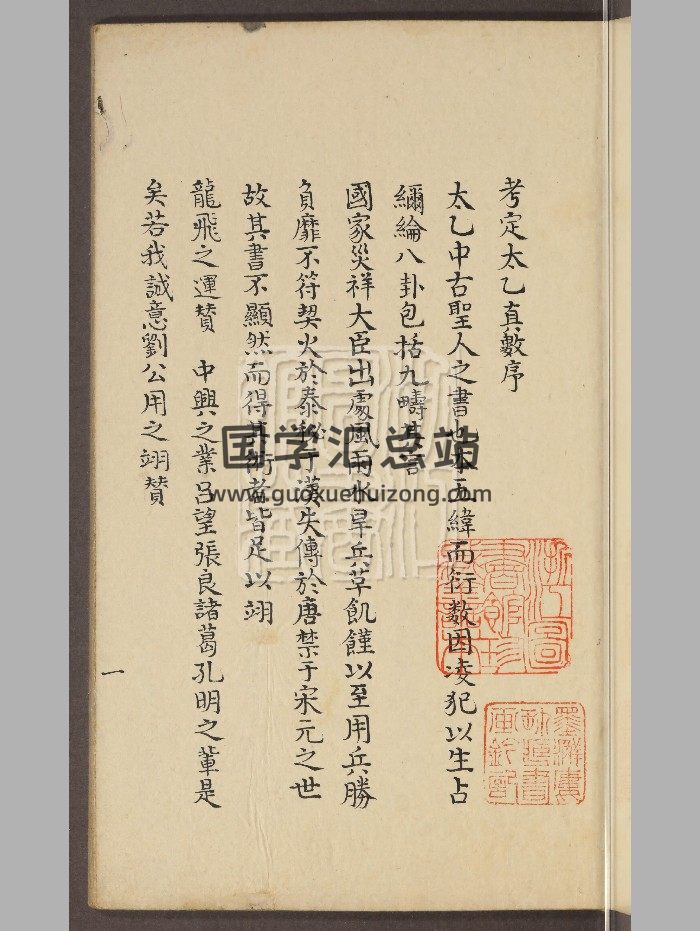 考定太乙真數序
太乙中古聖人之書也本五緯而衍数因凌犯以生占
緬綸八卦包括九疇其言
國家災祥大臣出處風雨水旱兵草飢饉以至用兵勝
負靡不符契火於秦秘于漢失傳於唐禁于宋元之世
故其書不顯然而得其術者皆足以翊
龍飛之運賛 中興之業吕望張良諸葛孔明之輩是
矣若我誠意劉公用之翊賛
一
国学汇总站
www.guoxuehuizong.com